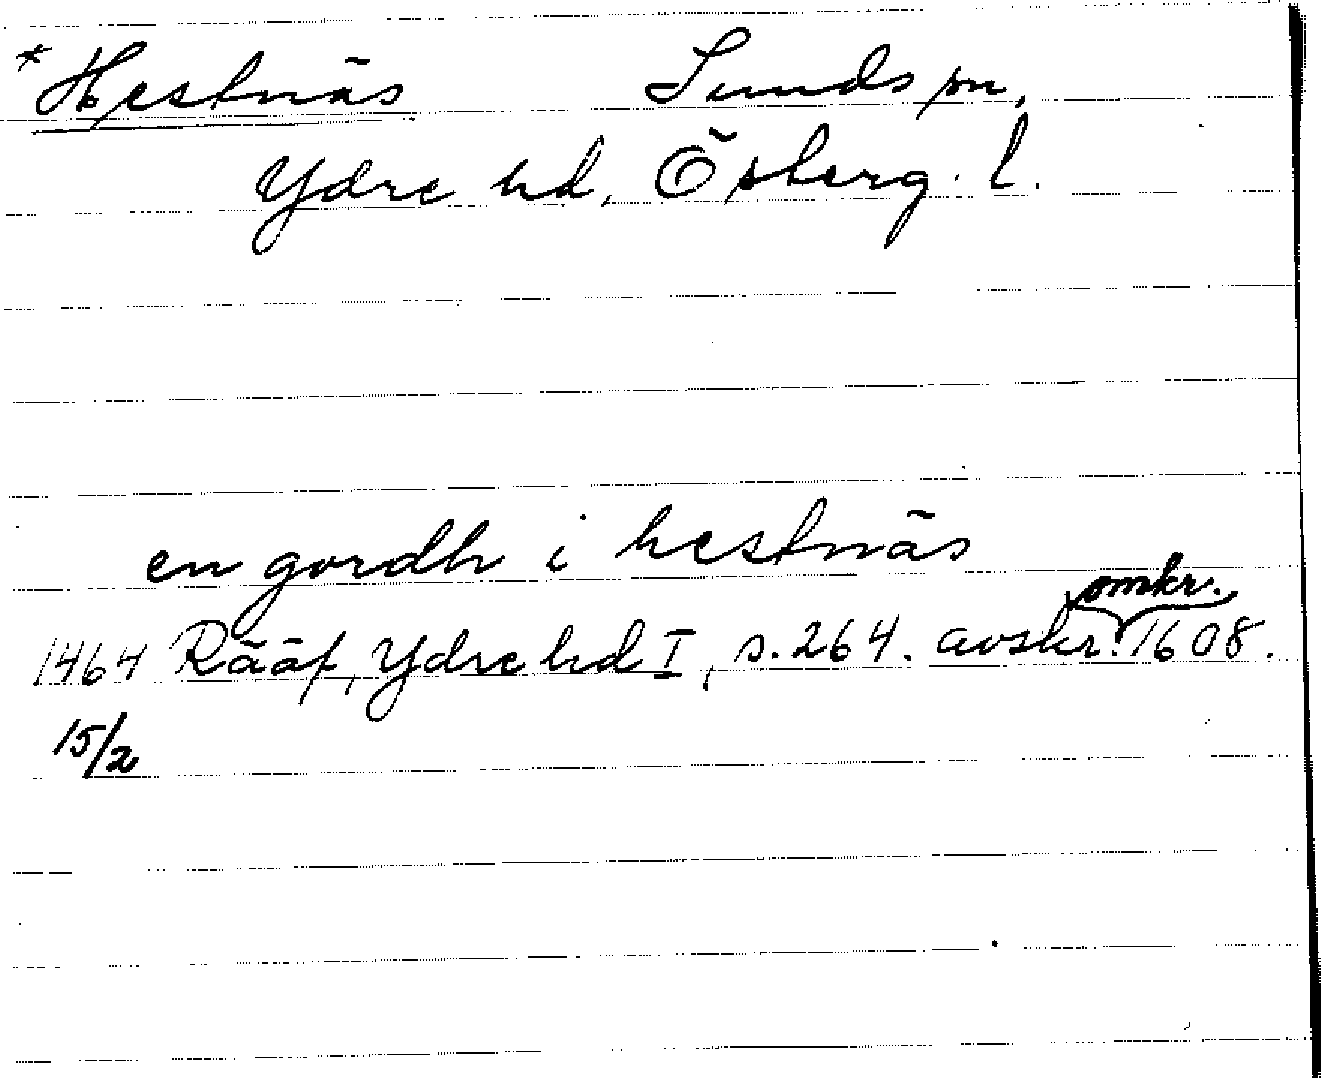 *Hestnäs Sunds sn,
Ydre hd, Österg. l.
en gordh i hestnäs
1464 Rääf, Ydre hd I, s. 264. avskr. omkr. 1608.
15/2